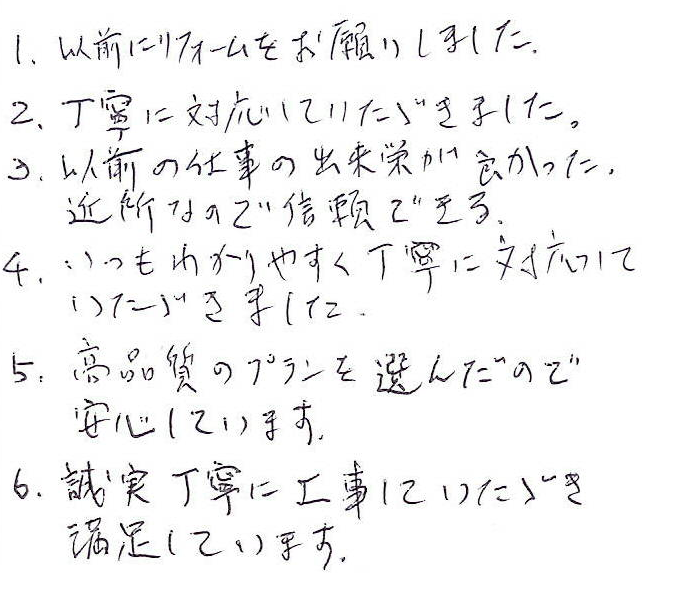 1. 以前にリフォームをお願いしました.
2. 丁寧に対応していただきました。
3. 以前の仕事の出来栄が良かった.
近所なので信頼できる.
4. いつもわかりやすく丁寧に対応して
いただきました.
5. 高品質のプランを選んだので
安心しています.
6. 誠実丁寧に工事していただき
満足しています.